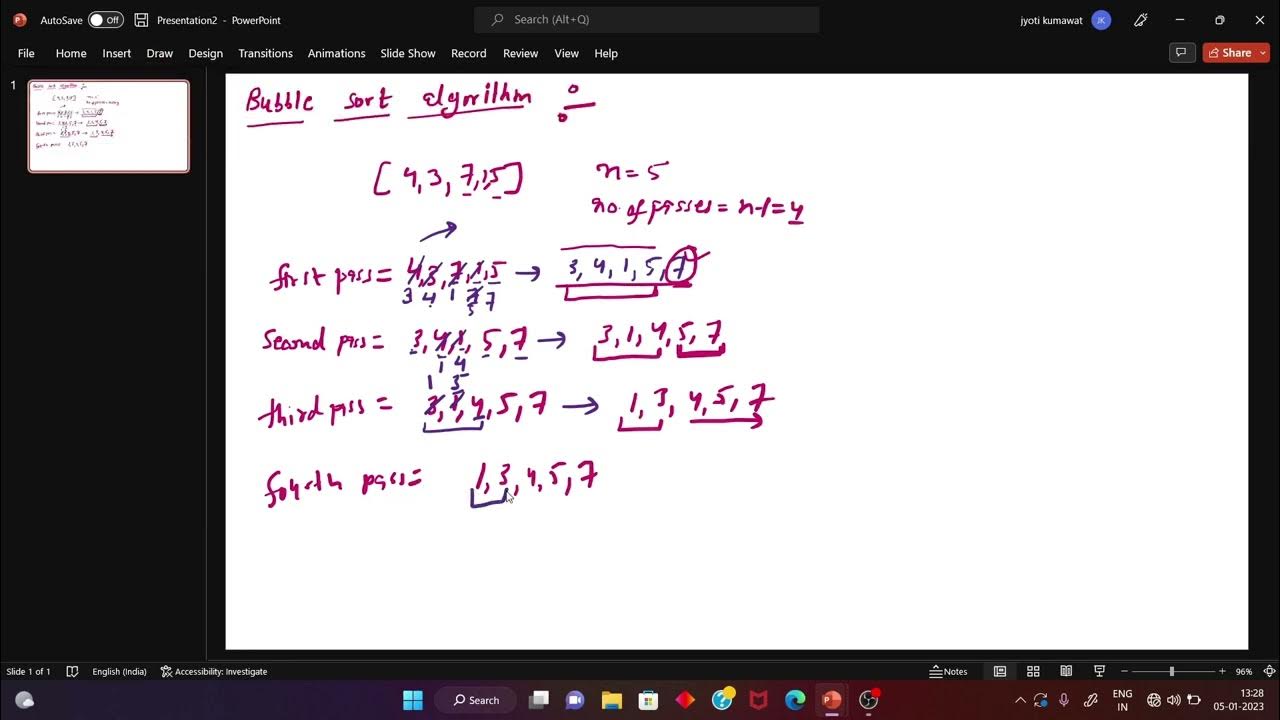 AutoSave Off Presentation2 - PowerPoint
Search (Alt+Q)
jyoti kumawat JK
File Home Insert Draw Design Transitions Animations Slide Show Record Review View Help
Share
1
Bubble sort algorithm :-
[4, 3, 7, 1, 5] n = 5
no. of passes = n-1 = 4
first pass = 4, 3, 7, 1, 5 → 3, 4, 1, 5, 7
3 4 1 7 7
5
Second pass = 3, 4, 1, 5, 7 → 3, 1, 4, 5, 7
1 4
1 3
third pass = 3, 1, 4, 5, 7 → 1, 3, 4, 5, 7
fourth pass = 1, 3, 4, 5, 7
Slide 1 of 1 English (India) Accessibility: Investigate Notes 96%
Search
ENG
IN
13:28
05-01-2023